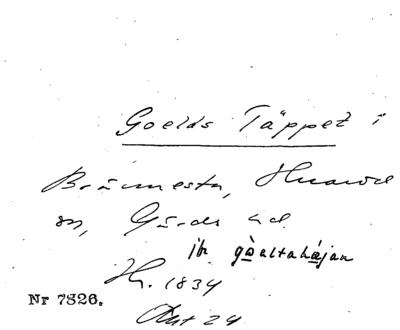 Goelds Täppet i
Brämnesta, Husarve
sn, Gärds hd.
ib. gòeltahǽjan
H. 1834
Nr 7826.
Akt 24